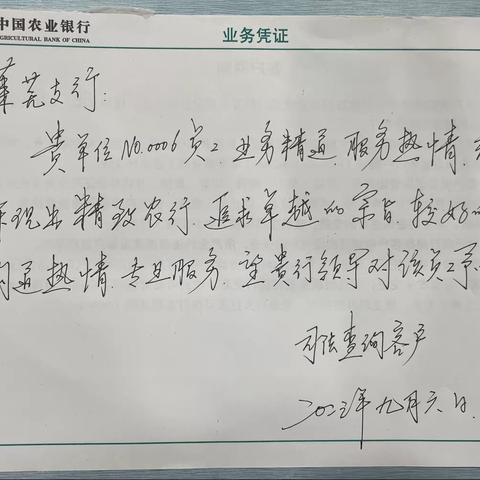 中国农业银行
AGRICULTURAL BANK OF CHINA
业务凭证
莱芜支行.
贵单位No.0006员工业务精通.服务热情.
现出精致农行.追求卓越的宗旨.较好
周道热情.专业服务.望贵行领导对该员工予
司法查询客户
二〇二三年九月六日.